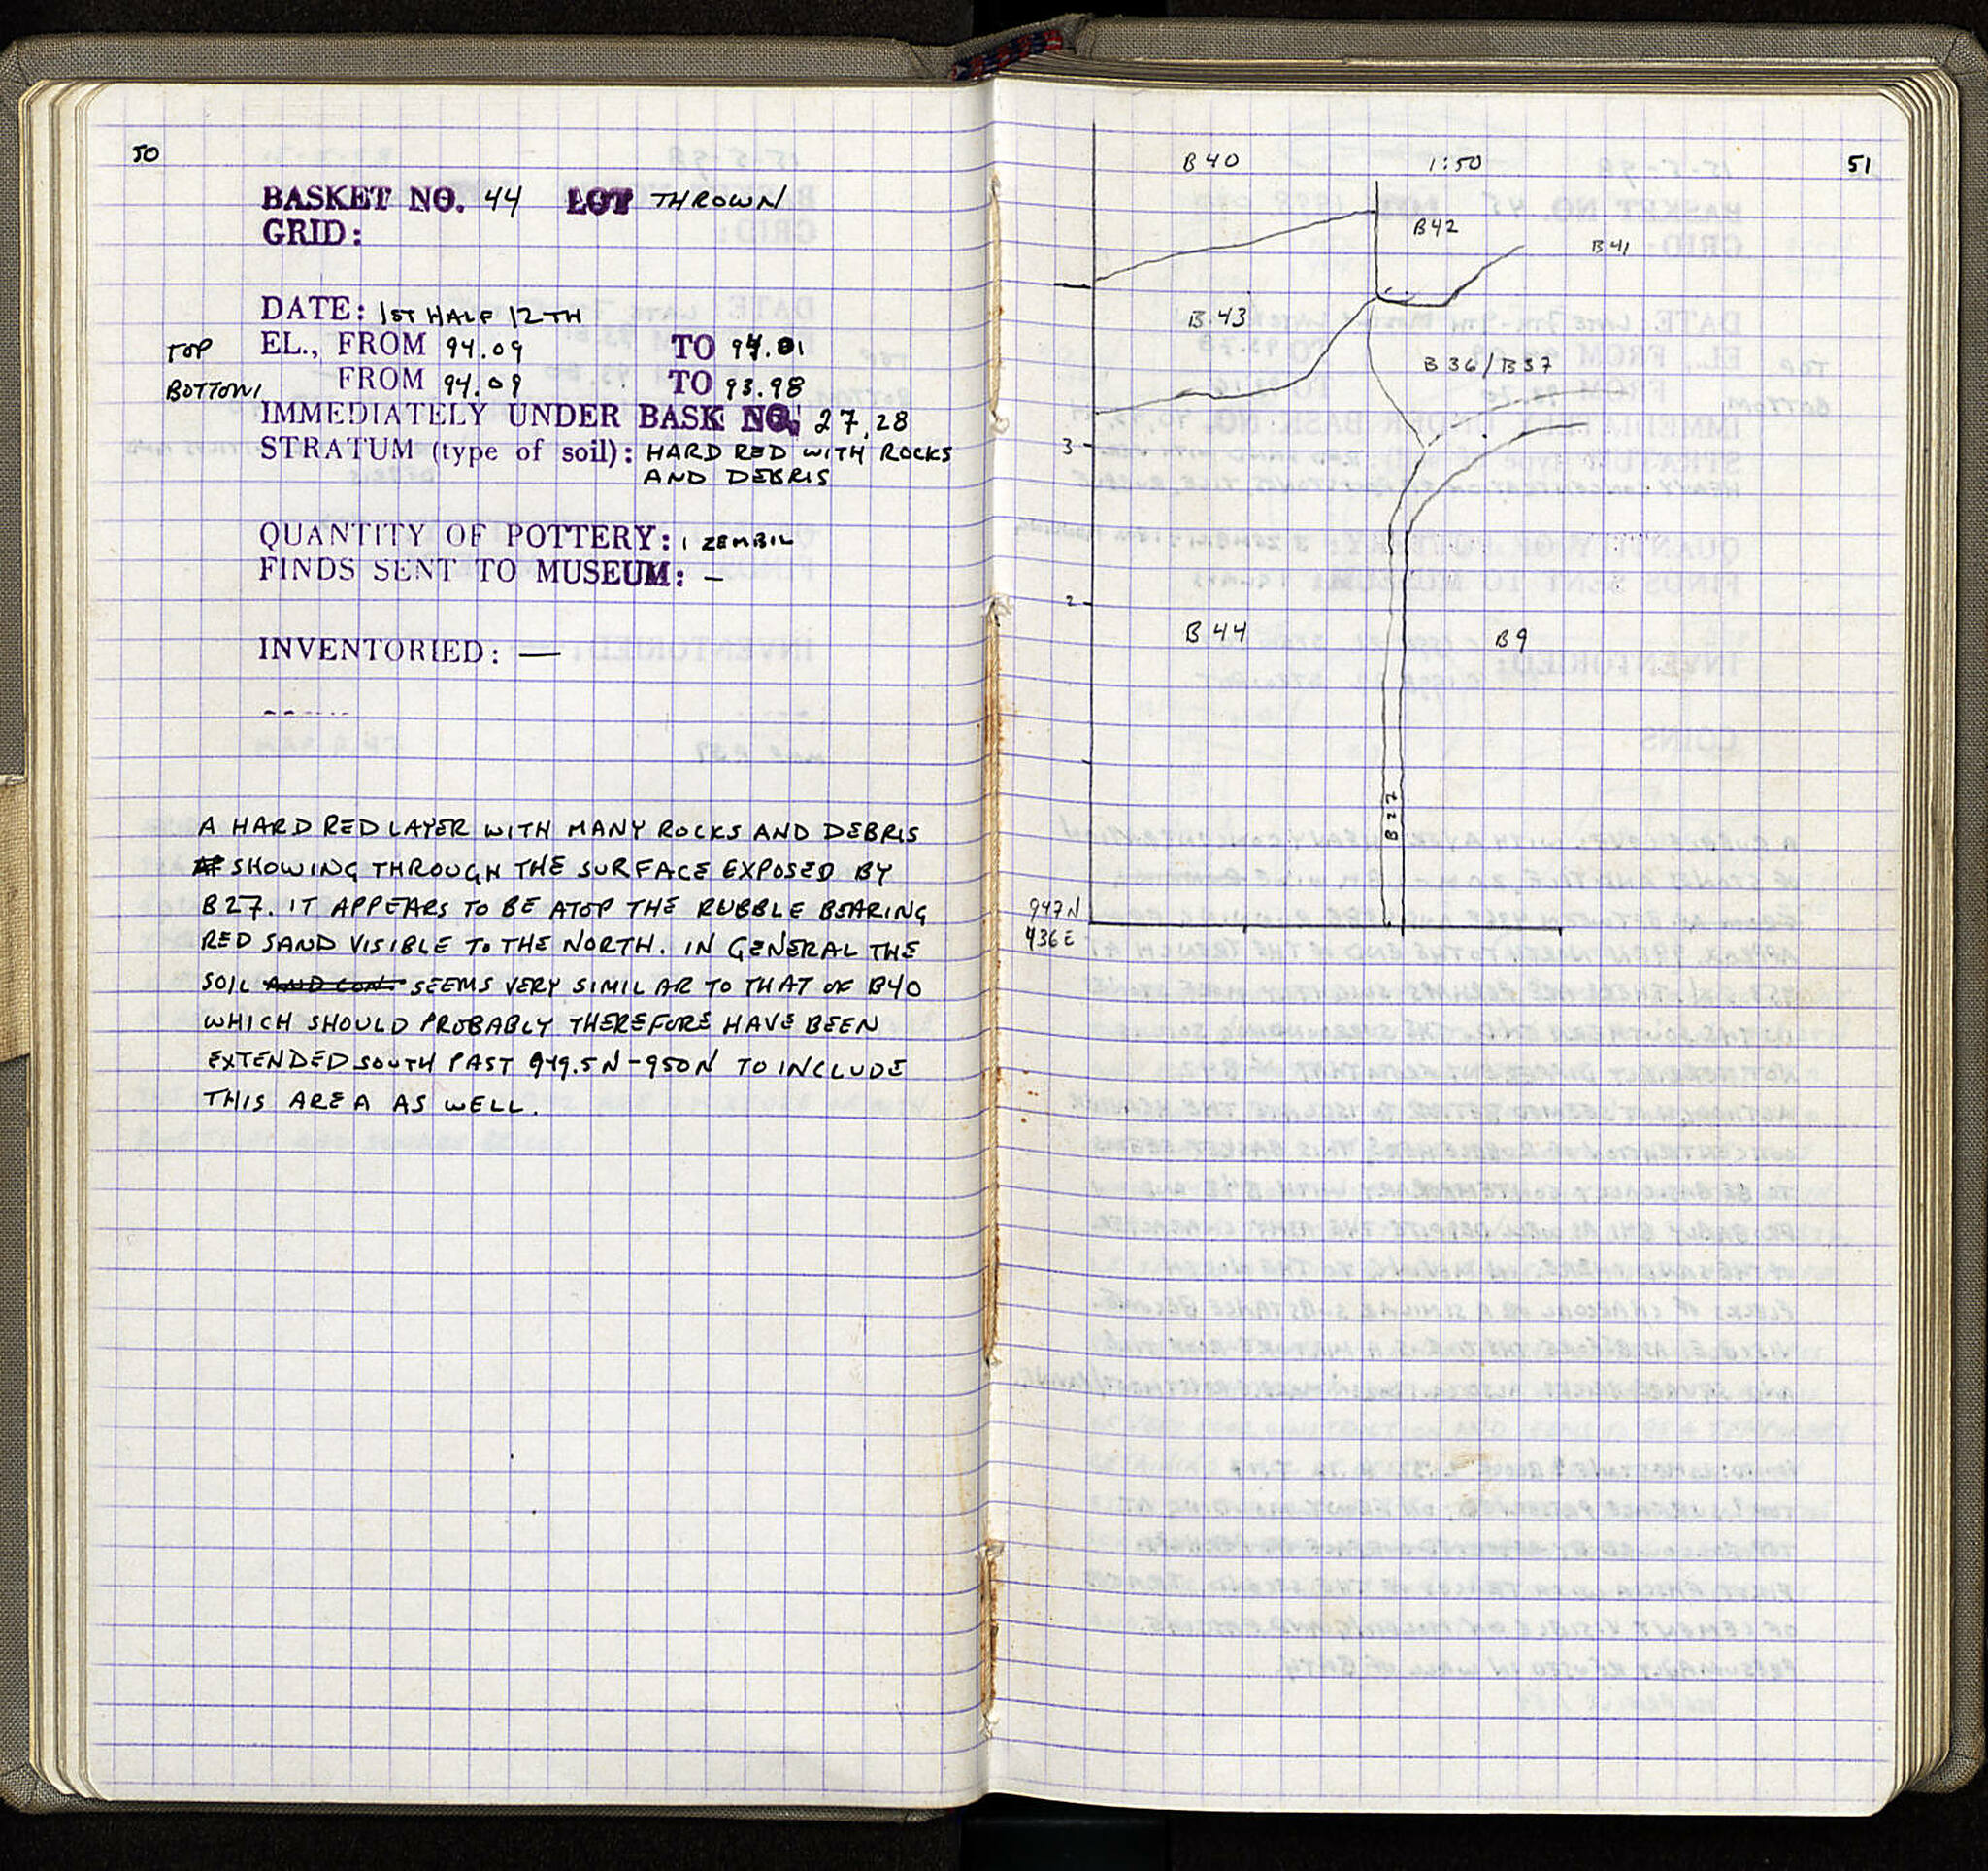 50
BASKET NO. 44 LOT THROWN
GRID:
DATE: 1ST HALF 12TH
TOP EL., FROM 94.09 TO 94.01
BOTTOM FROM 94.09 TO 93.98
IMMEDIATELY UNDER BASK NO. 27, 28
STRATUM (type of soil): HARD RED WITH ROCKS
AND DEBRIS
QUANTITY OF POTTERY: 1 ZEMBIL
FINDS SENT TO MUSEUM: —
INVENTORIED: —
A HARD RED LAYER WITH MANY ROCKS AND DEBRIS
SHOWING THROUGH THE SURFACE EXPOSED BY
B27. IT APPEARS TO BE ATOP THE RUBBLE BEARING
RED SAND VISIBLE TO THE NORTH. IN GENERAL THE
SOIL AND CON. SEEMS VERY SIMILAR TO THAT OF B40
WHICH SHOULD PROBABLY THEREFORE HAVE BEEN
EXTENDED SOUTH PAST 949.5N-950N TO INCLUDE
THIS AREA AS WELL.
51
B40 1:50
B42
B41
B.43
B36/B37
3
2
B44 B9
B27
947N
936E